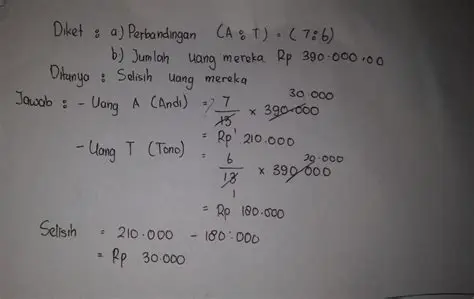 Diket : a.) Perbandingan (A : T) = (7 : 6)
b.) Jumlah uang mereka Rp 390.000,00
Ditanya : Selisih uang mereka
Jawab : - Uang A (Andi) = 7/13 x 390.000 30.000
1
= Rp 210.000
- Uang T (Tono) = 6/13 x 390.000 30.000
1
= Rp 180.000
Selisih = 210.000 - 180.000
= Rp 30.000